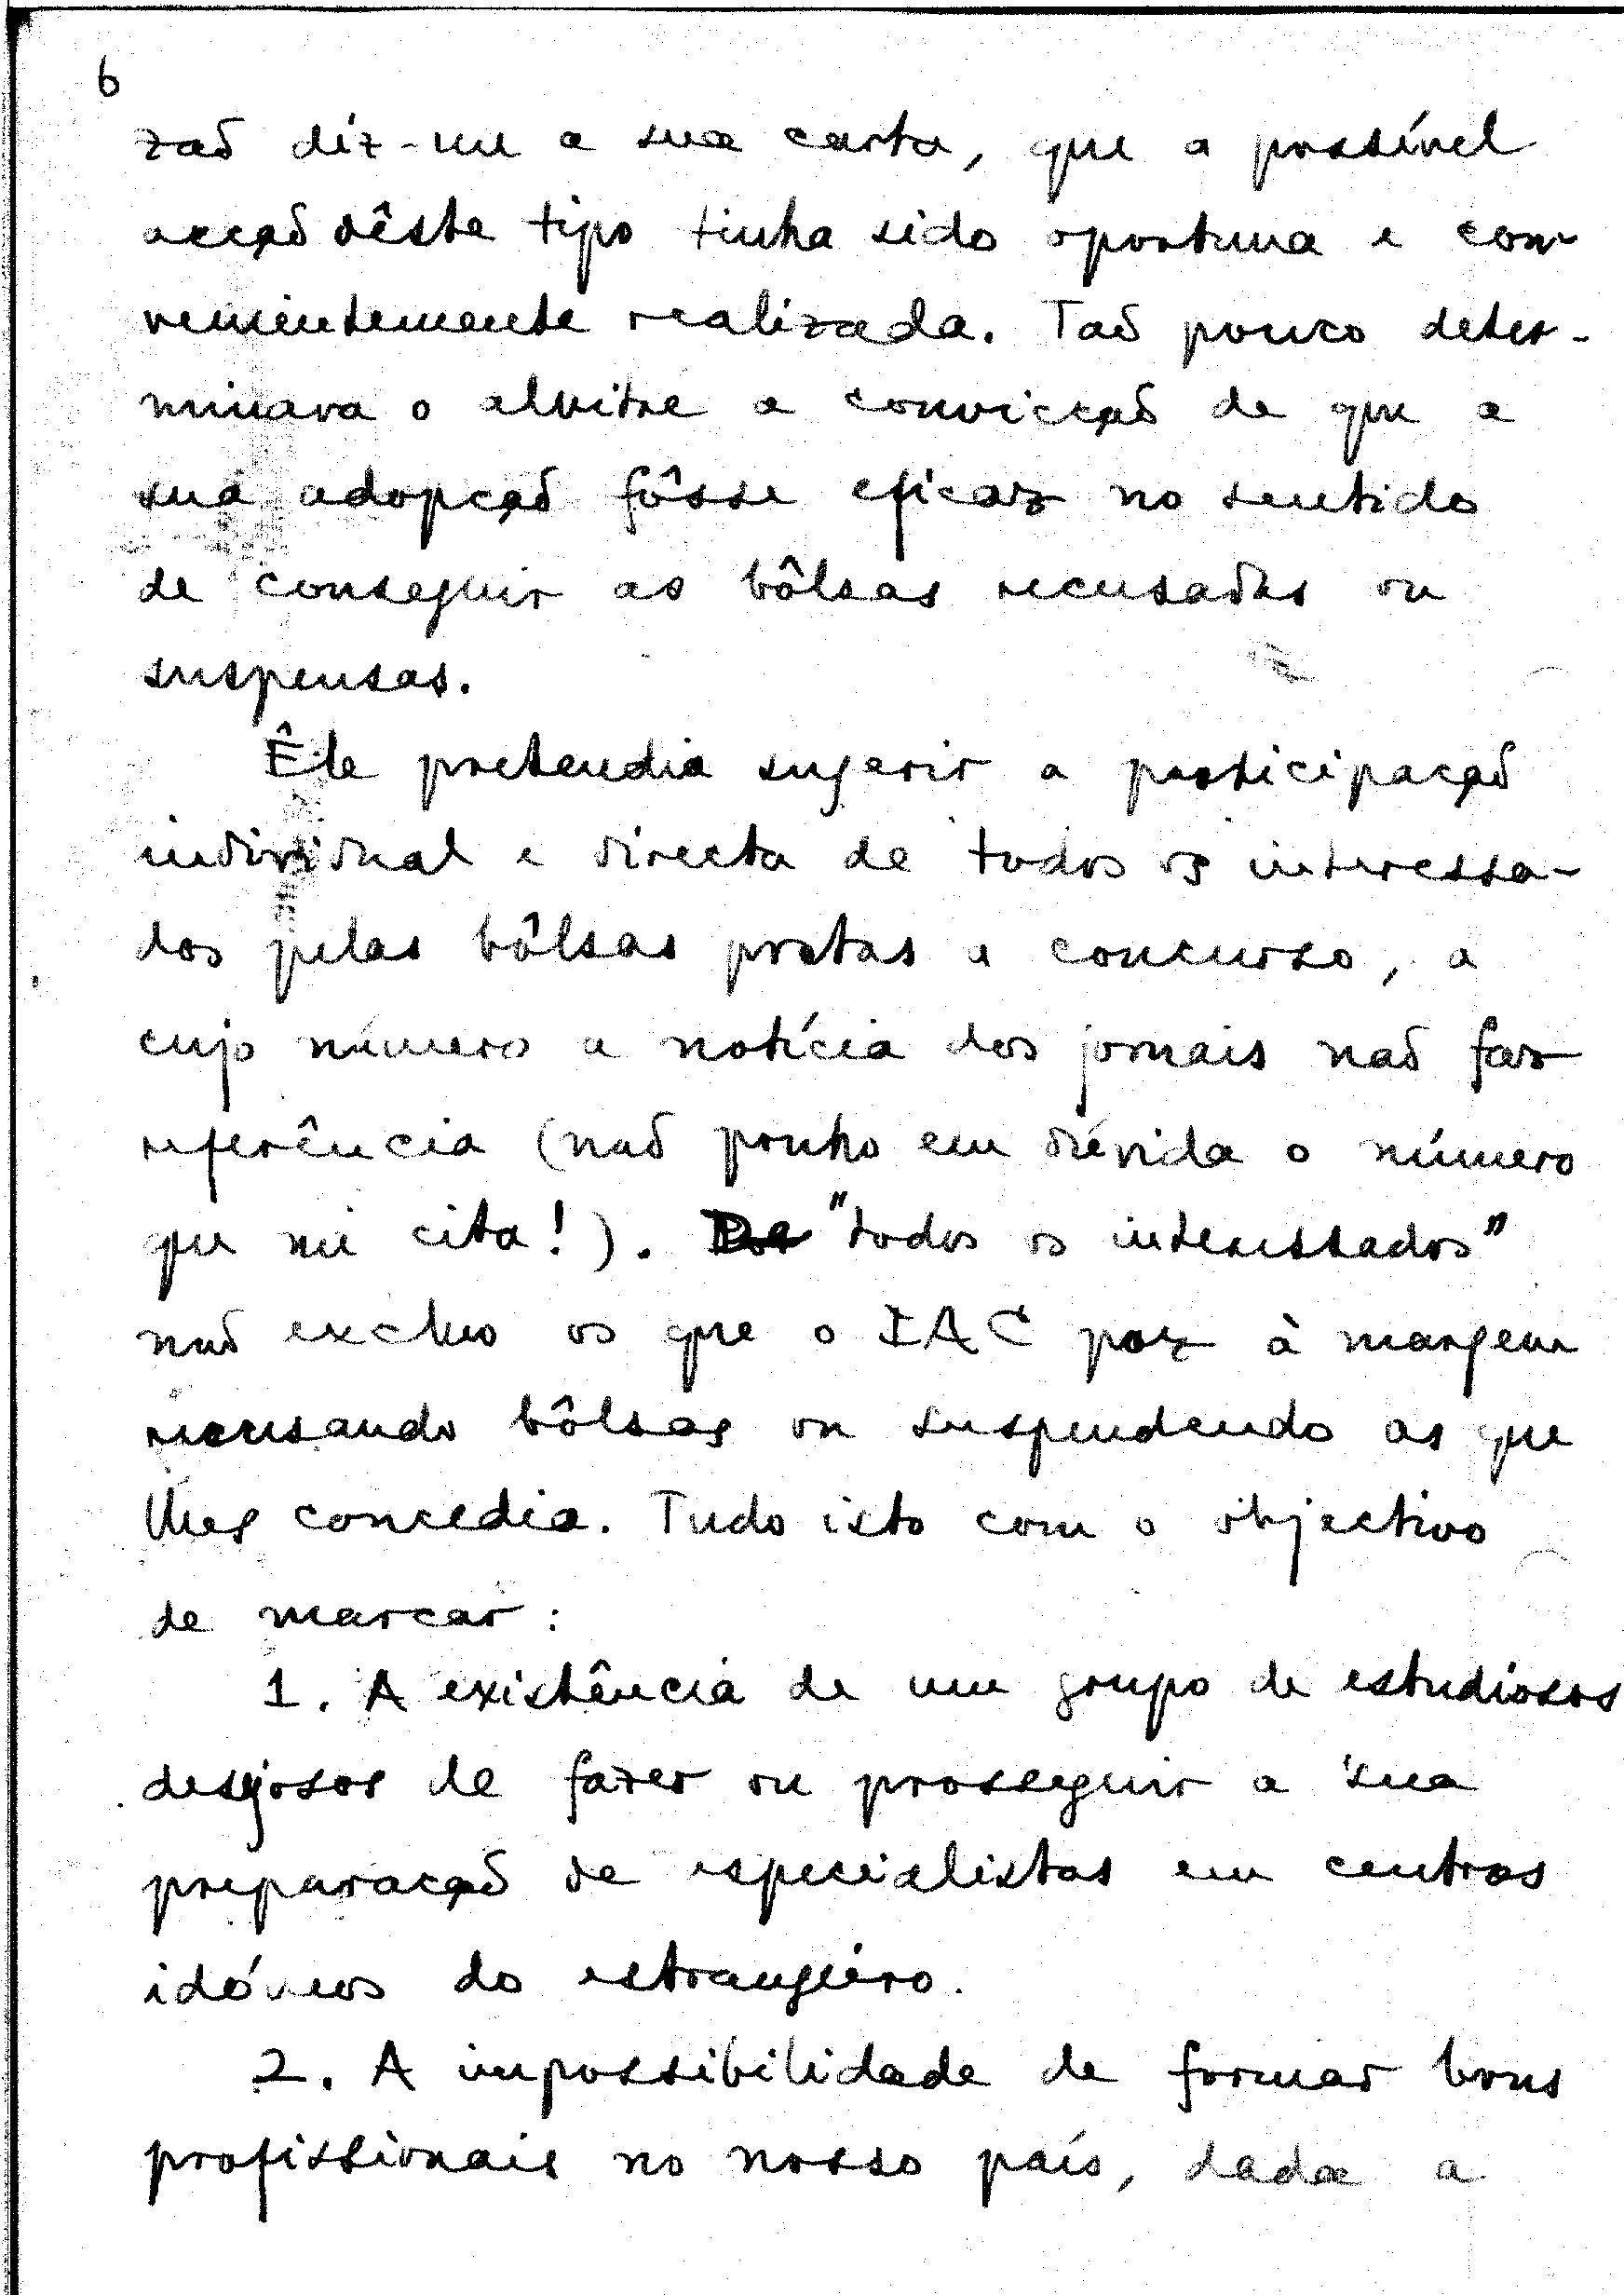 6
zaõ diz-me a sua carta, que a possível
acçaõ dêste tipo tinha sido oportuna e con-
venientemente realizada. Taõ pouco deter-
minava o alvitre a convicçaõ de que a
sua adopçaõ fôsse eficaz no sentido
de conseguir as bôlsas recusadas ou
suspensas.
Êle pretendia sugerir a participaçaõ
individual e directa de todos os interessa-
dos pelas bôlsas postas a concurso, a
cujo número a notícia dos jornais naõ faz
referência (naõ ponho em dúvida o número
que me cita!). "todos os interessados"
naõ excluo os que o IAC poz à margem
recusando bôlsas ou suspendendo as que
lhes concedia. Tudo isto com o objectivo
de marcar:
1. A existência de um grupo de estudiosos
desejosos de fazer ou proseguir a sua
preparaçaõ de especialistas em centros
idóneos do estrangeiro.
2. A impossibilidade de formar bons
profissionais no nosso país, dada a